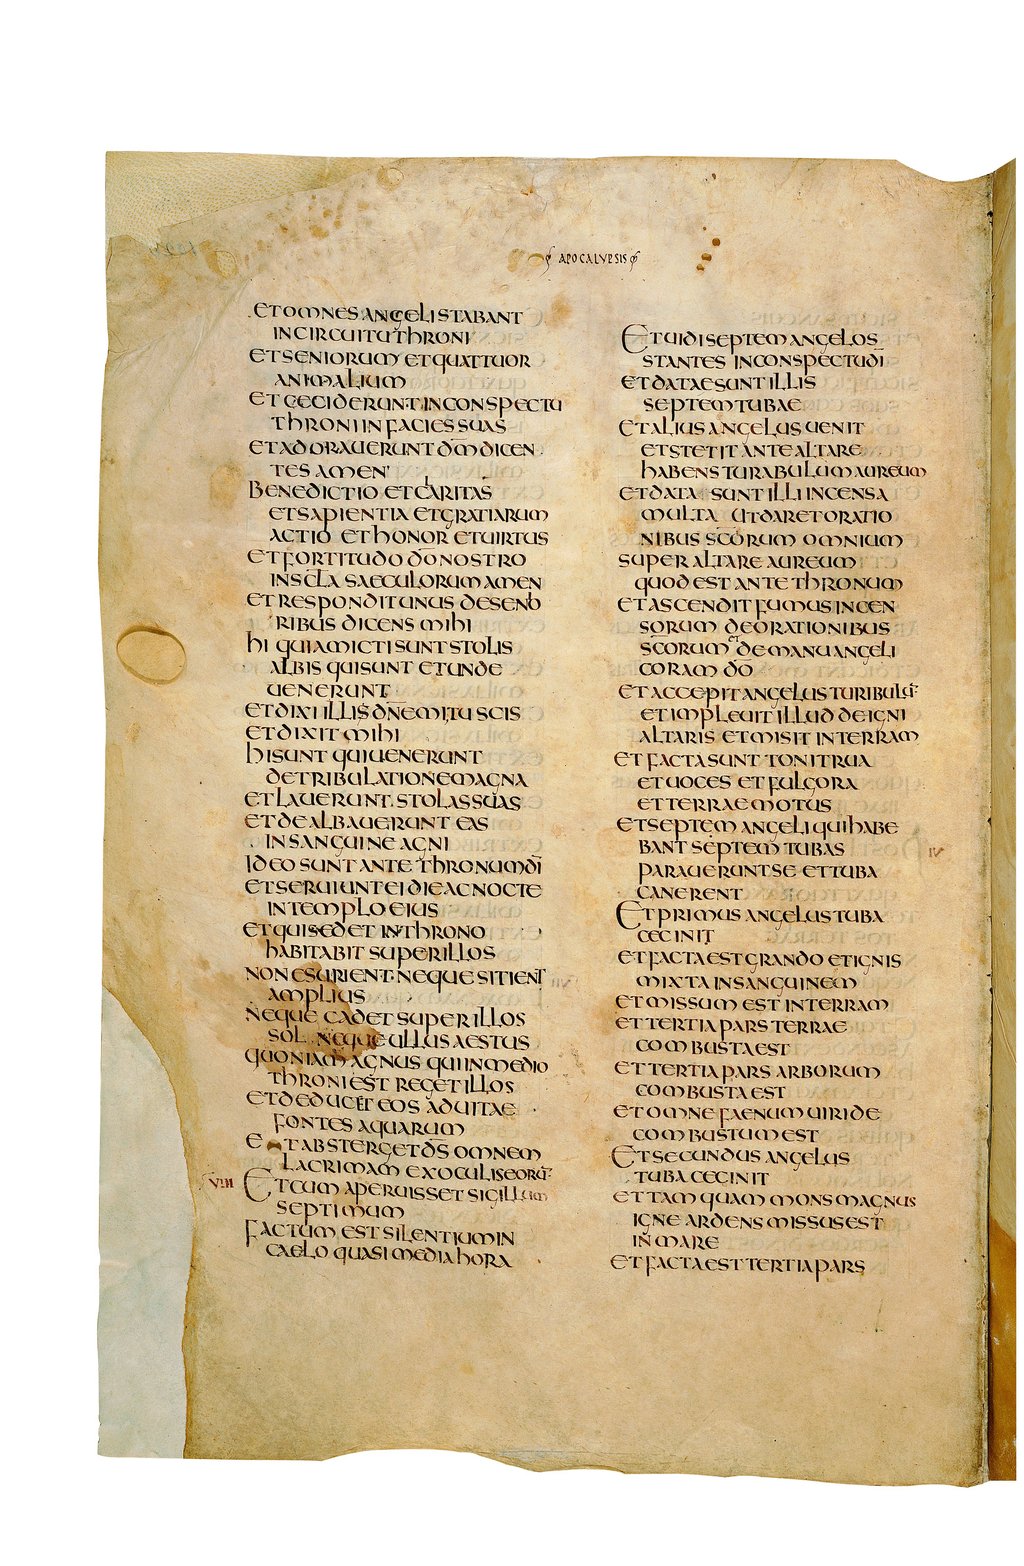 APOCALYPSIS
ET OMNES ANGELI STABANT
IN CIRCUITU THRONI
ET SENIORUM ET QUATTUOR
ANIMALIUM
ET CECIDERUNT IN CONSPECTU
THRONI IN FACIES SUAS
ET ADORAUERUNT DM̄ DICEN
TES AMEN
BENEDICTIO ET CLARITAS
ET SAPIENTIA ET GRATIARUM
ACTIO ET HONOR ET UIRTUS
ET FORTITUDO DŌ NOSTRO
IN SC̄LA SAECULORUM AMEN
ET RESPONDIT UNUS DE SENIO
RIBUS DICENS MIHI
HI QUI AMICTI SUNT STOLIS
ALBIS QUI SUNT ET UNDE
UENERUNT
ET DIXI ILLI DN̄E MI TU SCIS
ET DIXIT MIHI
HI SUNT QUI UENERUNT
DE TRIBULATIONE MAGNA
ET LAUERUNT STOLAS SUAS
ET DEALBAUERUNT EAS
IN SANGUINE AGNI
IDEO SUNT ANTE THRONUM DĪ
ET SERUIUNT EI DIE AC NOCTE
IN TEMPLO EIUS
ET QUI SEDET IN THRONO
HABITABIT SUPER ILLOS
NON ESURIENT NEQUE SITIENT
AMPLIUS
NEQUE CADET SUPER ILLOS
SOL NEQUE ULLUS AESTUS
QUONIAM AGNUS QUI IN MEDIO
THRONI EST REGET ILLOS
ET DEDUCET EOS AD UITAE
FONTES AQUARUM
ET ABSTERGET DS̄ OMNEM
LACRIMAM EX OCULIS EORŪ
VIII ET CUM APERUISSET SIGILLUM
SEPTIMUM
FACTUM EST SILENTIUM IN
CAELO QUASI MEDIA HORA
ET UIDI SEPTEM ANGELOS
STANTES IN CONSPECTU DĪ
ET DATAE SUNT ILLIS
SEPTEM TUBAE
ET ALIUS ANGELUS UENIT
ET STETIT ANTE ALTARE
HABENS TURABULUM AUREUM
ET DATA SUNT ILLI INCENSA
MULTA UT DARET ORATIO
NIBUS SC̄ORUM OMNIUM
SUPER ALTARE AUREUM
QUOD EST ANTE THRONUM
ET ASCENDIT FUMUS INCEN
SORUM DE ORATIONIBUS
SC̄ORUM DE MANU ANGELI
CORAM DŌ
ET ACCEPIT ANGELUS TURIBULŪ
ET IMPLEUIT ILLUD DE IGNI
ALTARIS ET MISIT IN TERRAM
ET FACTA SUNT TONITRUA
ET UOCES ET FULGORA
ET TERRAE MOTUS
ET SEPTEM ANGELI QUI HABE
BANT SEPTEM TUBAS
PARAUERUNT SE ET TUBA
CANERENT
ET PRIMUS ANGELUS TUBA
CECINIT
ET FACTA EST GRANDO ET IGNIS
MIXTA IN SANGUINEM
ET MISSUM EST IN TERRAM
ET TERTIA PARS TERRAE
COMBUSTA EST
ET TERTIA PARS ARBORUM
COMBUSTA EST
ET OMNE FAENUM UIRIDE
COMBUSTUM EST
ET SECUNDUS ANGELUS
TUBA CECINIT
ET TAMQUAM MONS MAGNUS
IGNE ARDENS MISSUS EST
IN MARE
ET FACTA EST TERTIA PARS